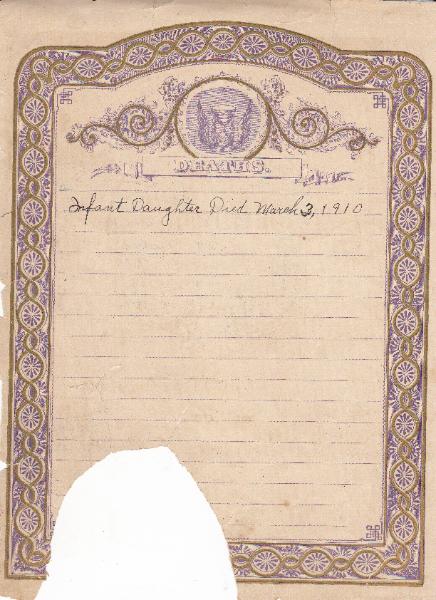 DEATHS.
Infant Daughter Died March 3, 1910